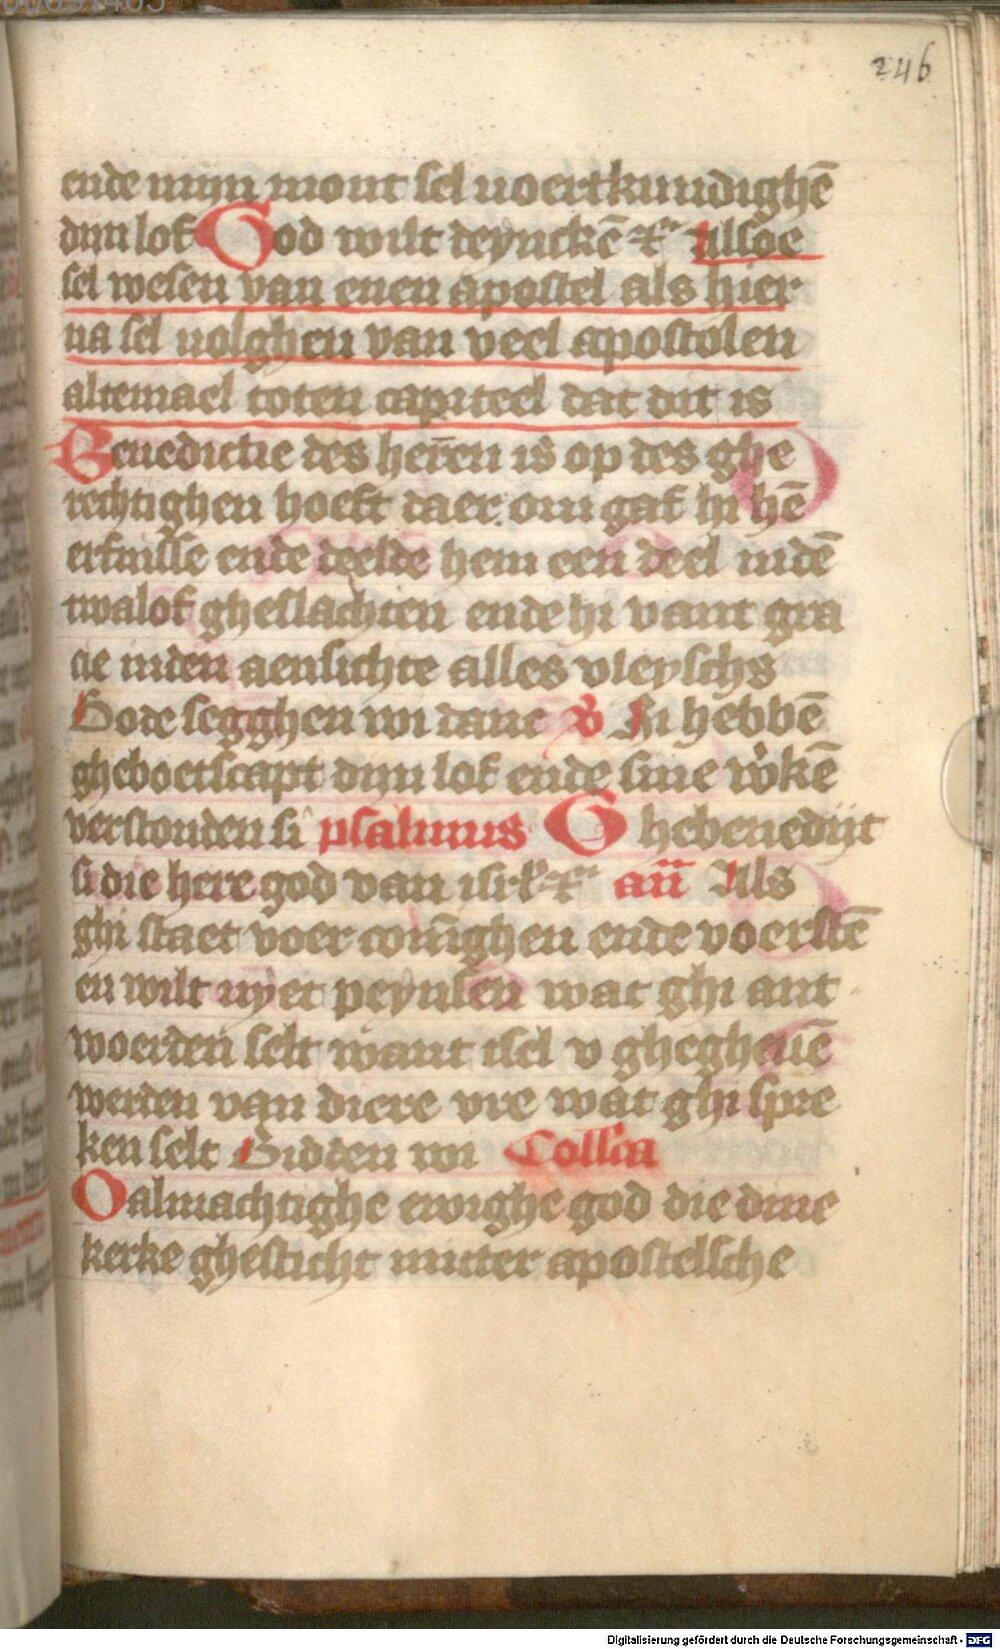 246
ende mijn mont sel voertkundighē
dijn lof God wilt deynckē &c Alsoe
sel wesen van enen apostel als hier
na sel volghen van veel apostolen
altemael toten capiteel dat dit is
Benedictie des herē̄n is op des ghe
rechtighen hoeft daer om gaf hi hē
erfnisse ende deelde hem een deel indē
twalof gheslachten ende hi vant gra
cie inden aensichte alles vleyschs
Gode segghen wi danc v̄ Si hebbē
gheboetscapt dijn lof ende sine w̾kē
verstonden si psalmus Ghebenedijt
si die here god van isrl̄ &c an̄ Als
ghi staet voer coni̅ghen ende voerstē
en wilt nyet peynsen wat ghi ant
woerden selt want tsel v ghegheuē
werden van diere vre wat ghi spre
ken selt Bidden wi Coll̄ca
O almachtighe ewighe god die dine
kerke ghesticht mitter apostelsche
Digitalisierung gefördert durch die Deutsche Forschungsgemeinschaft - DFG